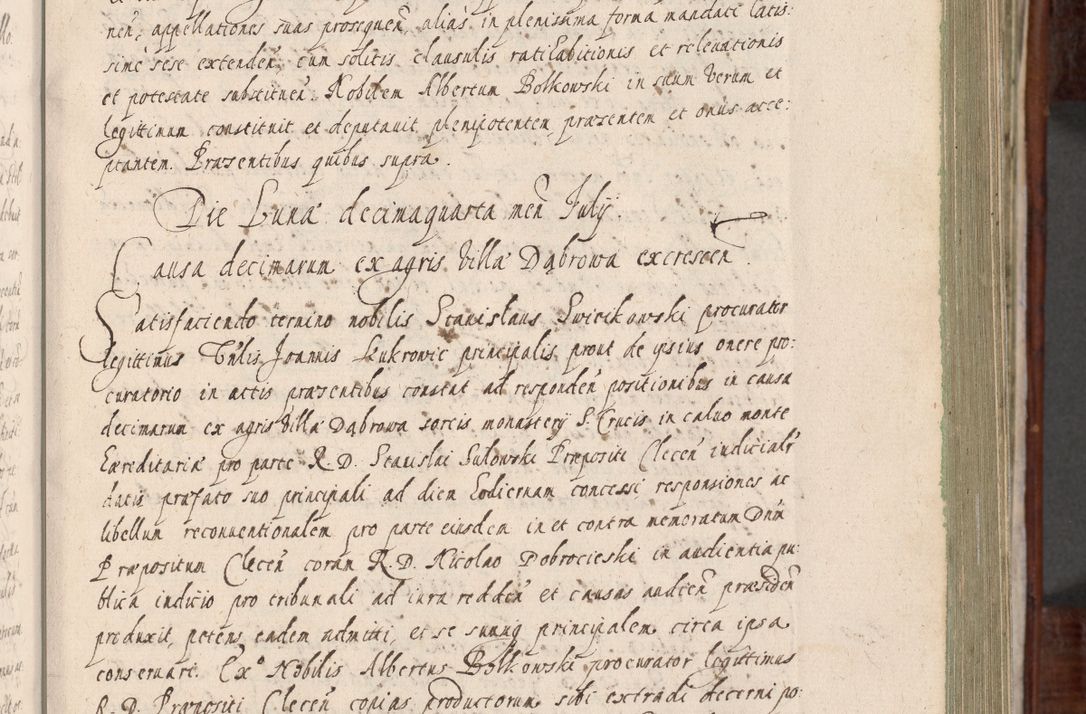 nen̄, appellationes suas prosequen̄, alias in plenissima forma mandati latis:
sime sese extenden̄, cum solitis clausulis ratihabitionis et releuationis
et potestate substituen̄. Nobilem Albertum Bolkowski in suum verum et
legittimum constituit et deputauit plenipotentem, præsentem et onus acce:
ptantem. Præsentibus quibus supra.
Die Lunæ decimaquarta men̄ Julij.
Causa decimarum ex agris villæ Dąbrowa excrescen̄.
Satisfaciendo termino nobilis Stanislaus Swiczkowski procurator
legittimus Joannis Lukrowic principalis prout de ipsius onere pro:
curatorio in actis præsentibus constat ad responden̄ positionibus in causa
decimarum ex agris villæ Dąbrowa sortis monasterij S. Crucis in caluo monte
hæreditariæ pro parte R. D. Stanislai Sulowski Præpositi Clecen̄ iudicialr̄
datis præfato suo principali ad diem hodiernam concessi responsiones ac
libellum reconuentionalem pro parte eiusdem in et contra memoratum Dnūm
Præpositum Clecen̄ coram R. D. Nicolao Dobrocieski in audientia pu:
blica iudicio pro tribunali ad iura redden̄ et causas audien̄ præsiden̄
produxit, petens eadem admitti, et se suumq principalem circa ipsa
conseruari. Ex° Nobilis Albertus Bolkowski procurator legittimus
R. D. Præpositi Clecen̄ copias productorum sibi extradi decerni po: